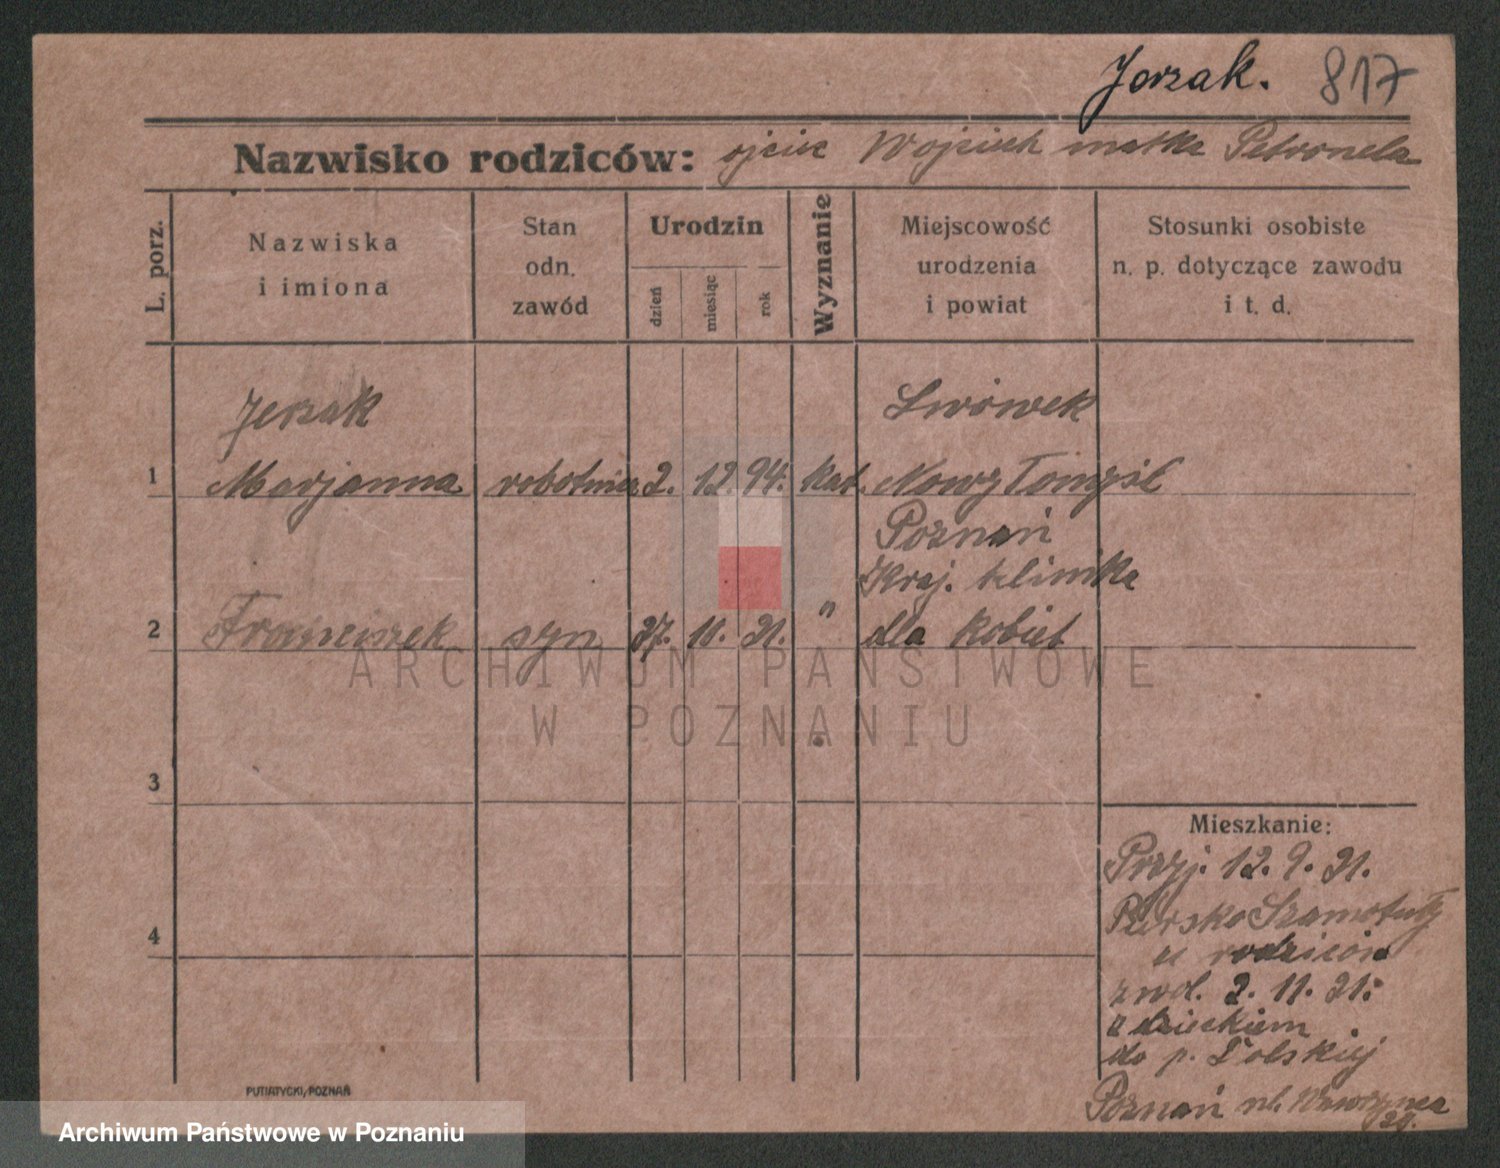 Jerzak. 817
Nazwisko rodziców: ojciec Wojciech matka Petronela
L. porz.
Nazwiska
i imiona
Stan
odn.
zawód
Urodzin
dzień
miesiąc
rok
Wyznanie
Miejscowość
urodzenia
i powiat
Stosunki osobiste
n. p. dotyczące zawodu
i t. d.
Jerzak Lwówek
1 Marjanna robotnica 2. 12. 94. kat. Nowy Tomyśl
Poznań
Kraj. klinika
2 Franciszek syn 27. 10. 21. " dla kobiet
ARCHIWUM PAŃSTWOWE
W POZNANIU
3
Mieszkanie:
Przyj. 12. 9. 21.
Piersko Szamotuły
4
u rodziców
zwol. 2. 11. 21.
z dzieckiem
do p. Dolskiej
Poznań ul. Wawrzynca
29.
PUTIATYCKI, POZNAŃ
Archiwum Państwowe w Poznaniu